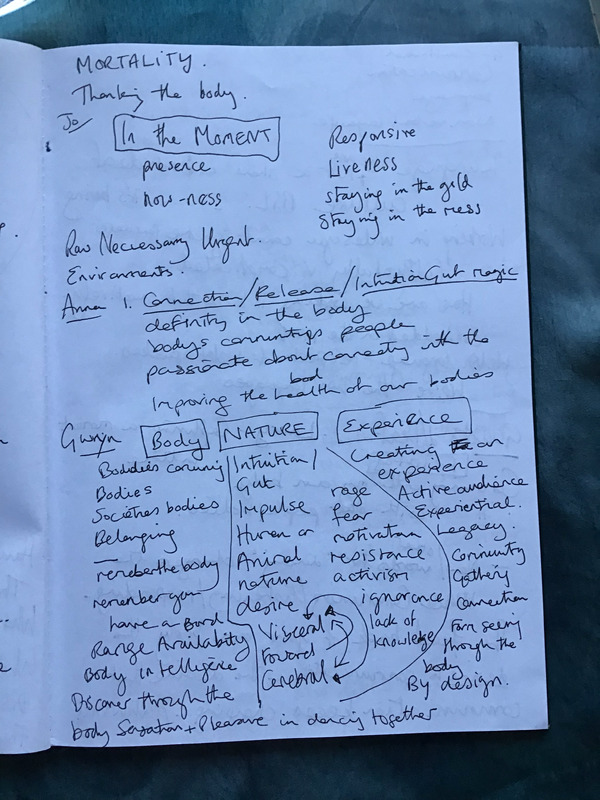 MORTALITY.
Thanking the body.
Jo
In the MOMENT
presence
now-ness
Responsive
Liveness
staying in the gold
staying in the mess
Raw Neccessary Urgent.
Environments.
Anna 1. Connection/Release/Intuition Gut magic
definitly in the body
bodys communitys people
passionate about connecting with the
bod
Improving the health of our bodies
Gwyn
Body
NATURE
Experience
Boddies coming
Bodies
Societies bodies
Belonging
—
remeber the body
remember you
have a Bord
Range Availabity
Body intelligence
Discover through the
body Sensation + Pleasure in dancing together
Intuition/
Gut
Impulse
Human or
Animal
nature
desire
Visceral
toward
Cerebral
rage
fear
motivation
resistance
activism
ignorance
lack of
knowledge
Creating an
experience
Active audience
Experiential.
Legacy.
Community
Gathering
Connection
Farn seeing
through the
body
By design.